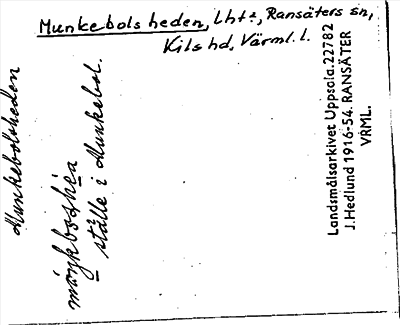 Munkebolsheden, Lht², Ransäters sn,
Kils hd, Värml. l.
Munkebolsheden
ställe i Munkebol.
Landsmålsarkivet Uppsala. 22782
J. Hedlund 1916-54. RANSÄTER
VRML.